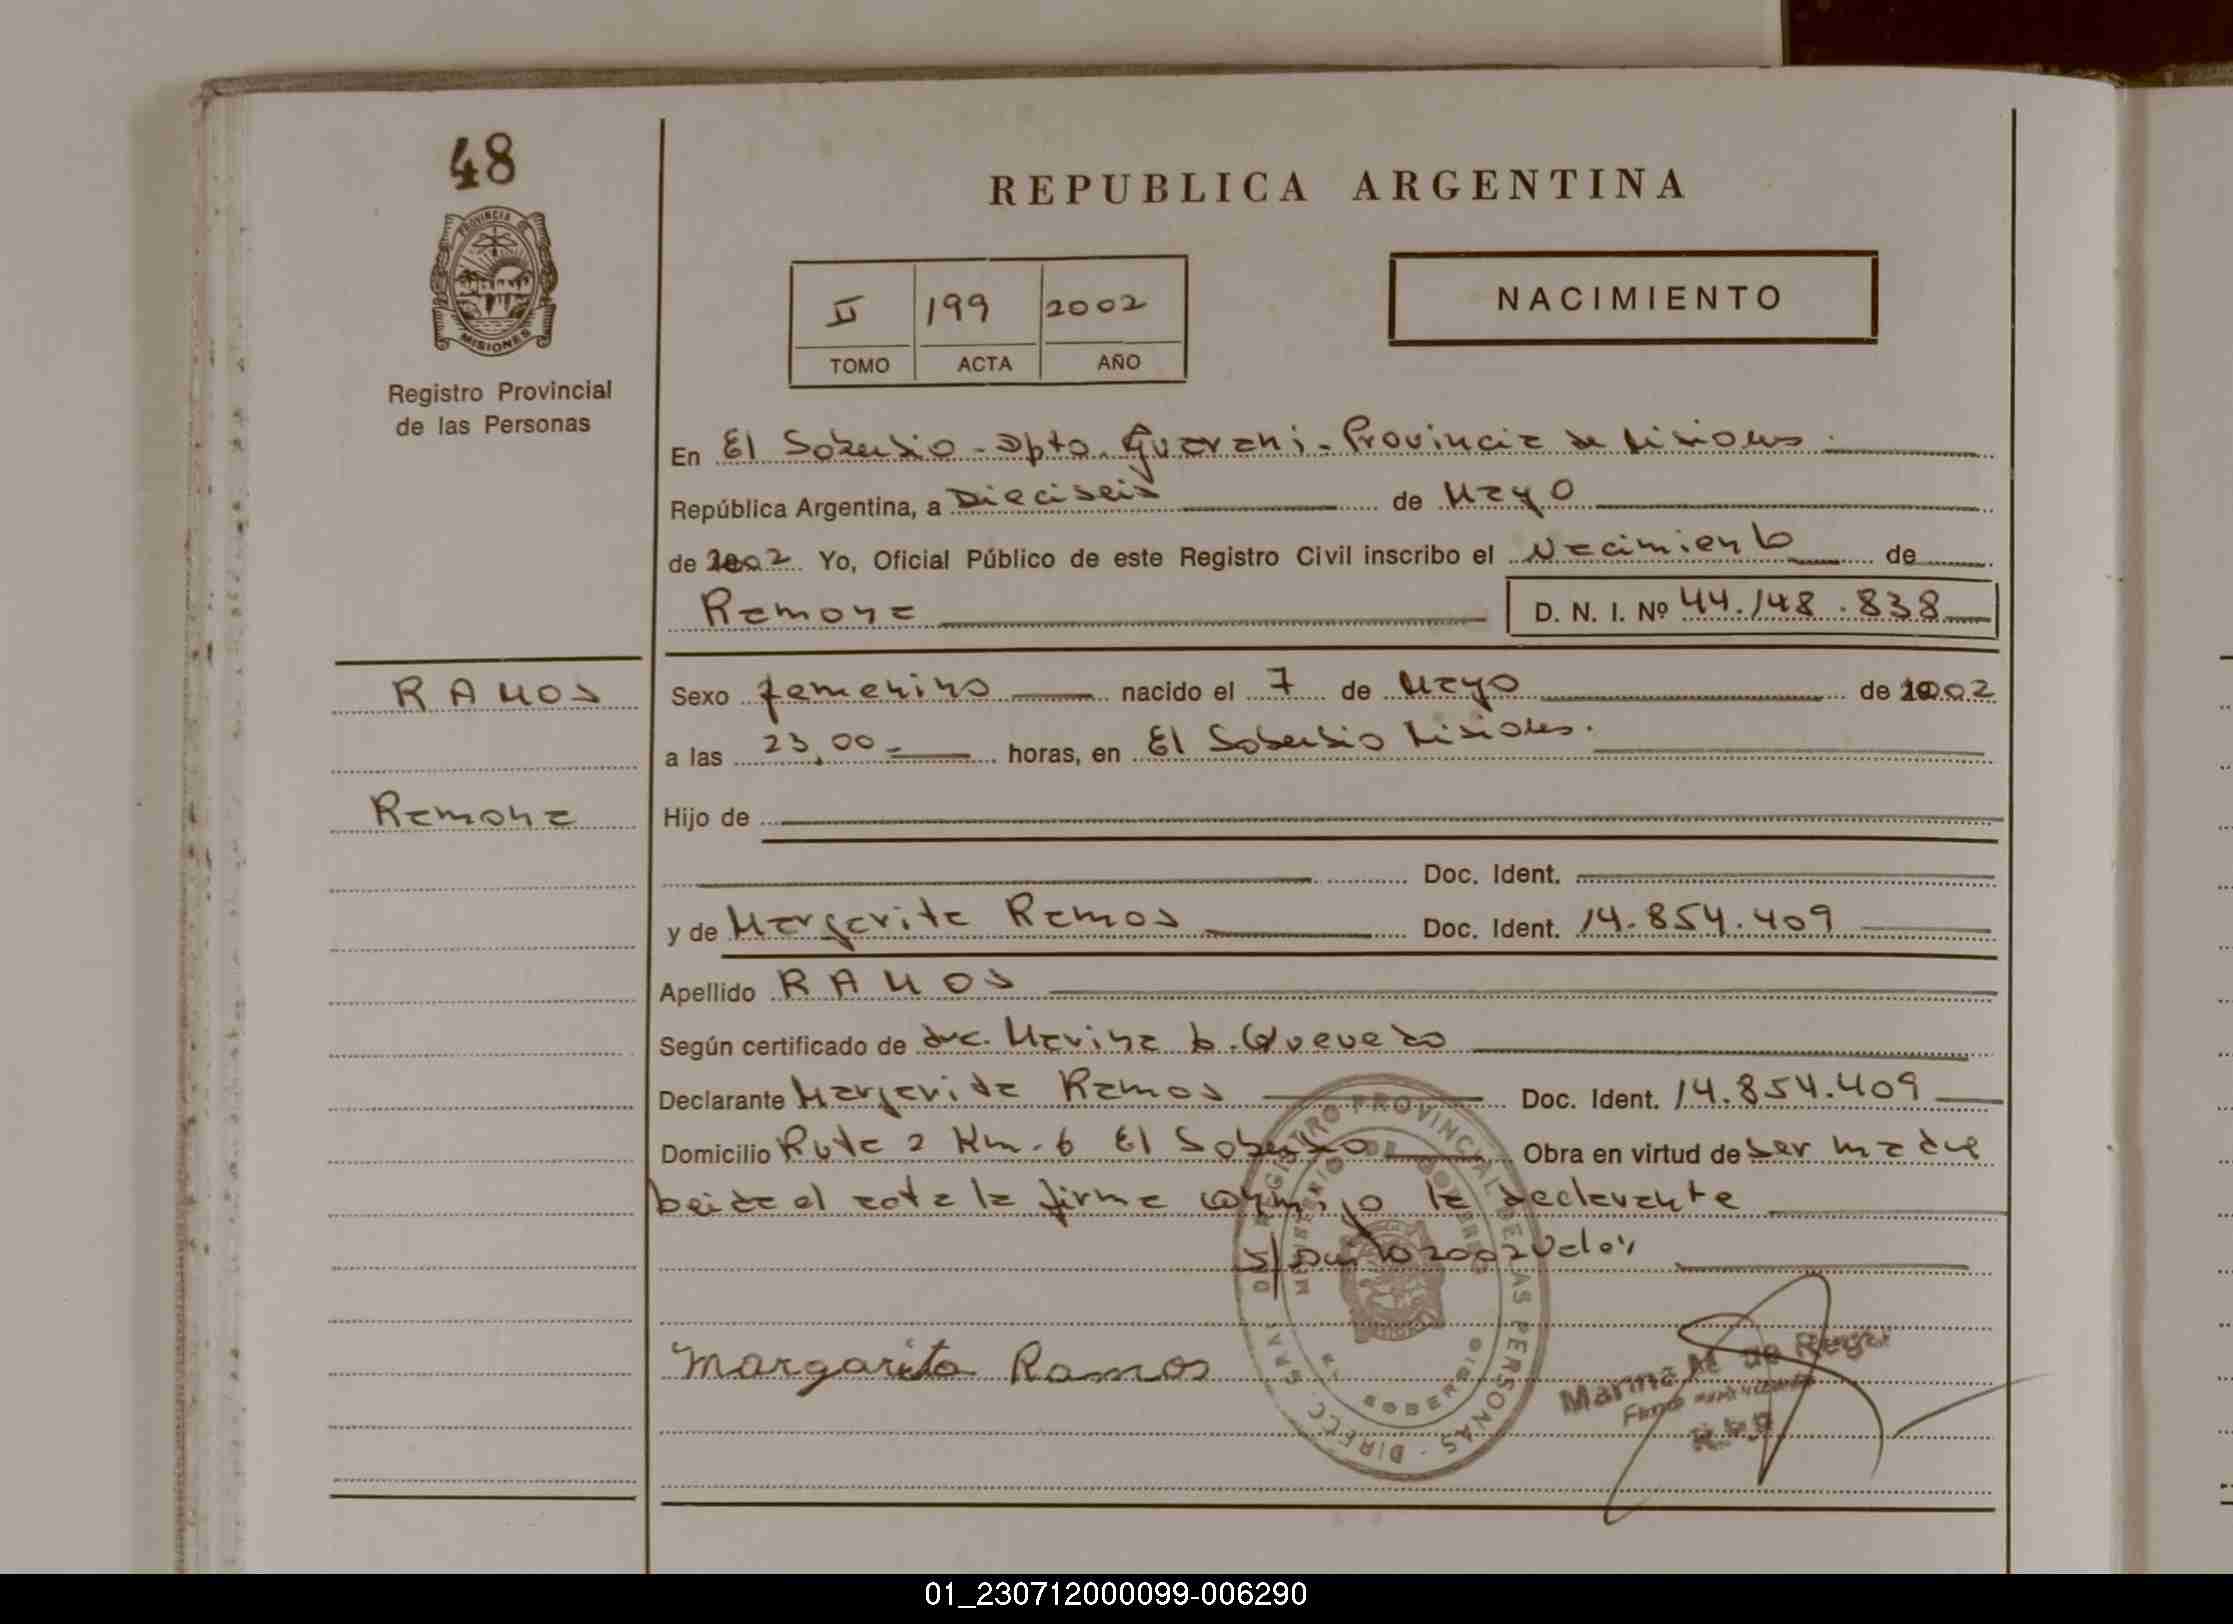 48
PROVINCIA DE
MISIONES
Registro Provincial
de las Personas
REPUBLICA ARGENTINA
II 199 2002
TOMO ACTA AÑO
NACIMIENTO
En El Soberbio - Dpto. Guarani - Provincia de Misiones.
República Argentina, a Dieciseis de Mayo
de 2002 Yo, Oficial Público de este Registro Civil inscribo el Nacimiento de
Ramona D. N. I. Nº 44.148.838
RAMOS
Ramona
Sexo femenino nacido el 7 de Mayo de 2002
a las 23,00 horas, en El Soberbio Misiones.
Hijo de
Doc. Ident.
y de Margarita Ramos Doc. Ident. 14.854.409
Apellido RAMOS
Según certificado de Marina Quevedo
Declarante Margarita Ramos Doc. Ident. 14.854.409
Domicilio Ruta 2 Km. 6 El Soberbio Obra en virtud de ser madre
Leida el acta la firma conmigo la declarante
2002 Vale
Margarita Ramos
DIRECC. GRAL. DEL REGISTRO PROVINCIAL DE LAS PERSONAS
MINISTERIO DE GOBIERNO
EL SOBERBIO
Marina de
01_230712000099-006290